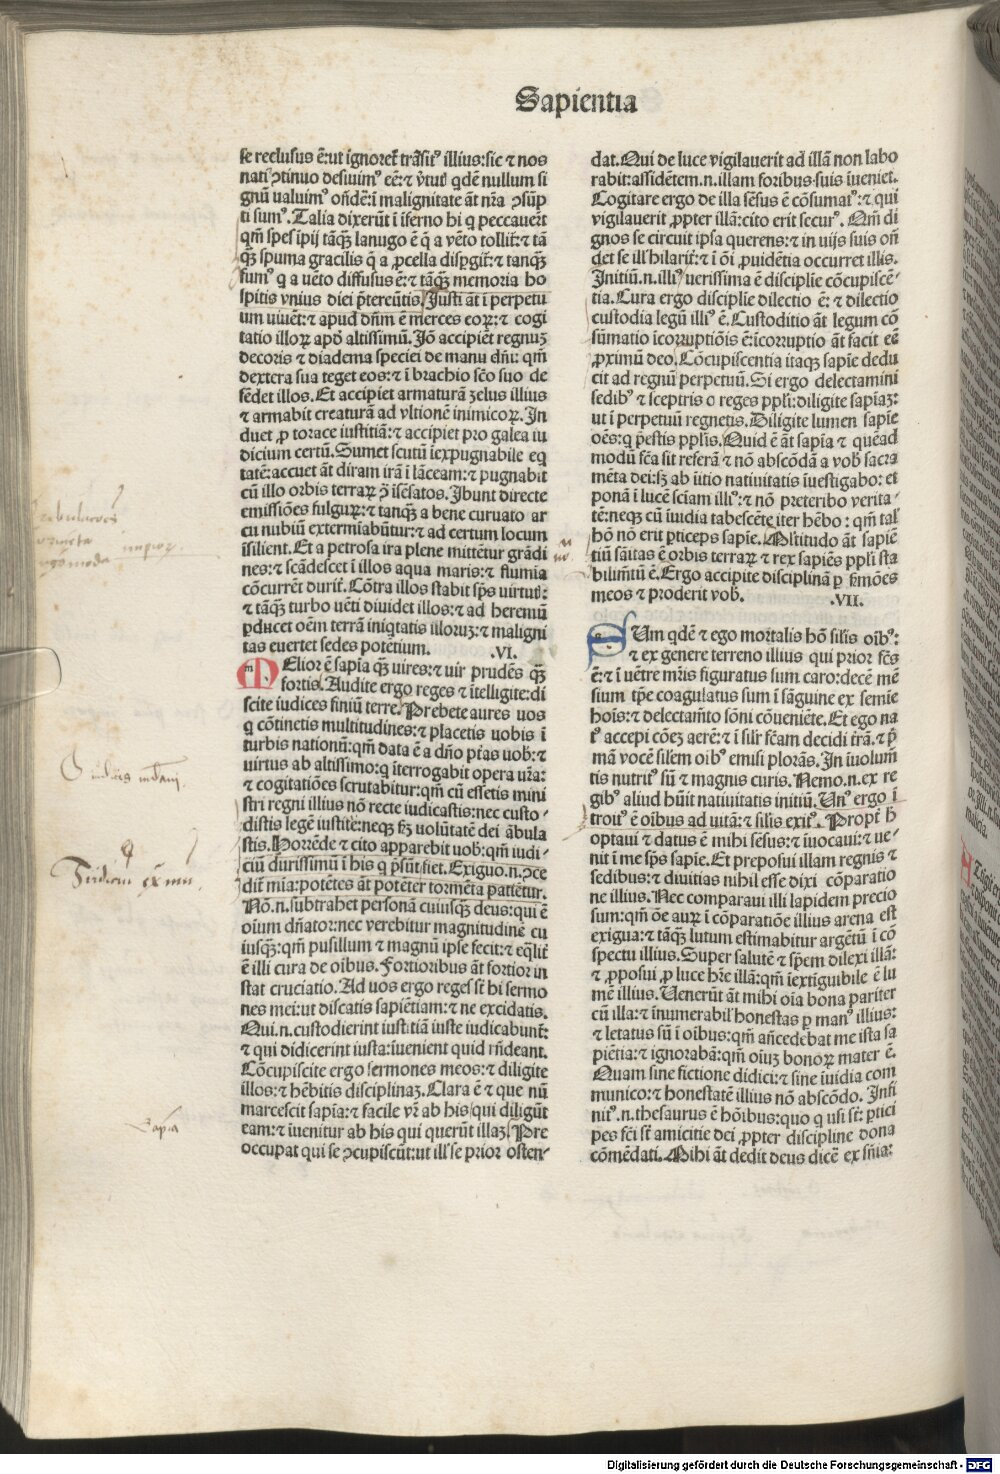 Sapientia
se reclusus ē:ut ignoret trāsitꝰ illius:sic ⁊ nos
nati ꝯtinuo desivimꝰ eē:⁊ v̄tutꝭ qdē nullum si
gnū valuimꝰ oñdē:ī malignitate āt nr̄a ꝯsūp
ti sumꝰ. Talia dixerūt ī iferno hi q peccauer̄t
qm̄ spes īpij tāq̄ꝫ lanugo ē q̄ a vēto tollit̄:⁊ tā
q̄ꝫ spuma gracilis q̄ a ꝓcella dispgit̄:⁊ tanq̄ꝫ
fumꝰ q a uēto diffusus ē:⁊ tāq̄ꝫ memoria ho
spitis vnius diei p̄tereūtis. Justi āt ī perpetu
um uiuēt:⁊ apud dñm ē merces eoꝝ:⁊ cogi
tatio illoꝝ apd̓ altissimū. Jō accipiēt regnuꝫ
decoris ⁊ diadema speciei de manu dñi: qm̄
dextera sua teget eos:⁊ ī brachio sc̄o suo de
fēdet illos. Et accipiet armaturā zelus illius
⁊ armabit creaturā ad vltionē inimicoꝝ. In
duet ꝓ torace iustitiā:⁊ accipiet pro galea iu
dicium certū. Sumet scutū iexpugnabile eq
tatē:accuet āt diram irā ī lāceam:⁊ pugnabit
cū illo orbis terraꝝ ꝯ̄ isēsatos. Ibunt directe
emissiōes fulguꝝ:⁊ tanq̄ꝫ a bene curuato ar
cu nubiū extermiabūtur:⁊ ad certum locum
īsilient. Et a petrosa ira plene mittētur grādi
nes:⁊ scādescet ī illos aqua maris:⁊ flumia
cōcurrēt durit̄. Cōtra illos stabit sp̄s virtutꝭ:
⁊ tāq̄ꝫ turbo uēti diuidet illos:⁊ ad heremū
ꝑducet oēm terrā iniqtatis illoruꝫ:⁊ maligni
tas euertet sedes potētium. .VI.
MElior ē sapīa q̄ꝫ uires:⁊ uir prudēs q̄ꝫ
fortis. Audite ergo reges ⁊ ītelligite:di
scite iudices finiū terre. Prebete aures uos
q cōtinetis multitudines:⁊ placetis uobis ī
turbis nationū:qm̄ data ē a dño ptās uob̓:⁊
uirtus ab altissimo:q īterrogabit opera ur̄a:
⁊ cogitatiōes scrutabitur:qm̄ cū essetis mini
stri regni illius nō recte iudicastis:nec custo-
distis legē iustitie:neqꝫ sꝫ uolūtatē dei ābula
stis. Horrēde ⁊ cito apparebit uob̓:qm̄ iudi-
ciū durissimū ī his q p̄sūt fiet. Exiguo.n.ꝯce
dit̄ mia:potētes āt potēter tormēta patiētur.
Nō.n.subtrahet personā cuiusq̄ꝫ deus:qui ē
oīum dñator:nec verebitur magnitudinē cu
iusq̄ꝫ:qm̄ pusillum ⁊ magnū ipse fecit:⁊ eqlit̄
ē illi cura de oībus. Fortioribus āt fortior in
stat cruciatio. Ad uos ergo reges st̄ hi sermo
nes mei:ut discatis sapiētiam:⁊ ne excidatis.
Qui.n.custodierint iustitiā iuste iudicabunt̄:
⁊ qui didicerint iusta:īuenient quid rñdeant.
Cōcupiscite ergo sermones meos:⁊ diligite
illos:⁊ hēbitis disciplinaꝫ. Clara ē ⁊ que nū
marcescit sapīa:⁊ facile vr̄ ab his qui diligūt
eam:⁊ īuenitur ab his qui querūt illaꝫ. Pre
occupat qui se ꝯcupiscūt:ut ill̓ se prior osten-
dat. Qui de luce vigilauerit ad illā non labo
rabit:assidētem.n.illam foribus suis īueniet.
Cogitare ergo de illa sēsus ē cōsumatꝰ:⁊ qui
vigilauerit ꝓpter illā:cito erit securꝰ. Qm̄ di
gnos se circuit ipsa querens:⁊ in uijs suis oñ
det se ill̓ hilarit̄:⁊ ī oī ꝓuidētia occurret illis.
Initiū.n.illiꝰ verissima ē discipli̅e cōcupiscē-
tia. Cura ergo discipli̅e dilectio ē: ⁊ dilectio
custodia legū illiꝰ ē. Custoditio āt legum cō
sūmatio īcorruptiōis ē:īcorruptio āt facit eē
ꝓximū deo. Cōcupiscentia itaqꝫ sapīe dedu
cit ad regnū perpetuū. Si ergo delectamini
sedibꝰ ⁊ sceptris o reges ppl̓i:diligite sapīaꝫ:
ut ī perpetuū regnetis. Diligite lumen sapīe
oēs:q p̄estis ppl̓is. Quid ē āt sapīa ⁊ quēad
modū fc̄a sit referā ⁊ nō abscōdā a vob̓ sacra
mēta dei:sꝫ ab ūitio natiuitatis īuestigabo: et
ponā ī lucē scīam illiꝰ:⁊ nō preteribo verita-
tē:neqꝫ cū īuidia tabescēte iter hēbo : qm̄ tal̓
hō nō erit ꝑticeps sapīe. Ml̓titudo āt sapiē
tiū sāitas ē orbis terraꝝ ⁊ rex sapiēs ppl̓i sta
bilim̄tū ē. Ergo accipite disciplinā ꝑ ẜmōes
meos ⁊ proderit vob̓. .VII.
SUm qdē ⁊ ego mortalis hō sil̓is oībꝰ:
⁊ ex genere terreno illius qui prior fc̄s
ē:⁊ ī uētre mr̄is figuratus sum caro:decē mē
sium tp̄e coagulatus sum ī sāguine ex semīe
hoīs:⁊ delectam̄to sōni cōueniēte. Et ego na
tꝰ accepi cōeꝫ aerē:⁊ ī sil̓r fc̄am decidi trā.⁊ p̄
mā vocē sil̓em oībꝰ emisi plorās. In īuolum̄
tis nutritꝰ sū ⁊ magnis curis. Nemo.n.ex re
gibꝰ aliud hūit natiuitatis initiū. Unꝰ ergo ī
troitꝰ ē oībus ad uitā:⁊ sil̓is exitꝰ. Propt̄ h̓
optaui ⁊ datus ē mihi sēsus:⁊ īuocaui:⁊ ue-
nit ī me sp̄s sapīe. Et preposui illam regnis ⁊
sedibus:⁊ diuitias nihil esse dixi cōparatio
ne illius. Nec comparaui illi lapidem precio
sum:qm̄ ōe auꝝ ī cōparatiōe illius arena est
exigua:⁊ tāq̄ꝫ lutum estimabitur argētū ī cō
spectu illius. Super salutē ⁊ sp̄em dilexi illā:
⁊ ꝓposui ꝓ luce hr̄e illā:qm̄ īextīguibile ē lu
mē illius. Uenerūt āt mihi oīa bona pariter
cū illa:⁊ īnumerabil̓ honestas ꝑ manꝰ illius:
⁊ letatus sū ī oībus:qm̄ añcedebat me ista sa
piētia:⁊ ignorabā:qm̄ oīuꝫ bonoꝝ mater ē.
Quam sine fictione didici:⁊ sine īuidia com
munico:⁊ honestatē illius nō abscōdo. Infi
nitꝰ.n.thesaurus ē hōibus:quo q usi st̄: ꝑtici
pes fc̄i st̄ amicitie dei ꝓpter discipline dona
cōmēdati. Mihi āt dedit deus dicē ex sn̄ia:
Sapīa
Digitalisierung gefördert durch die Deutsche Forschungsgemeinschaft - DFG